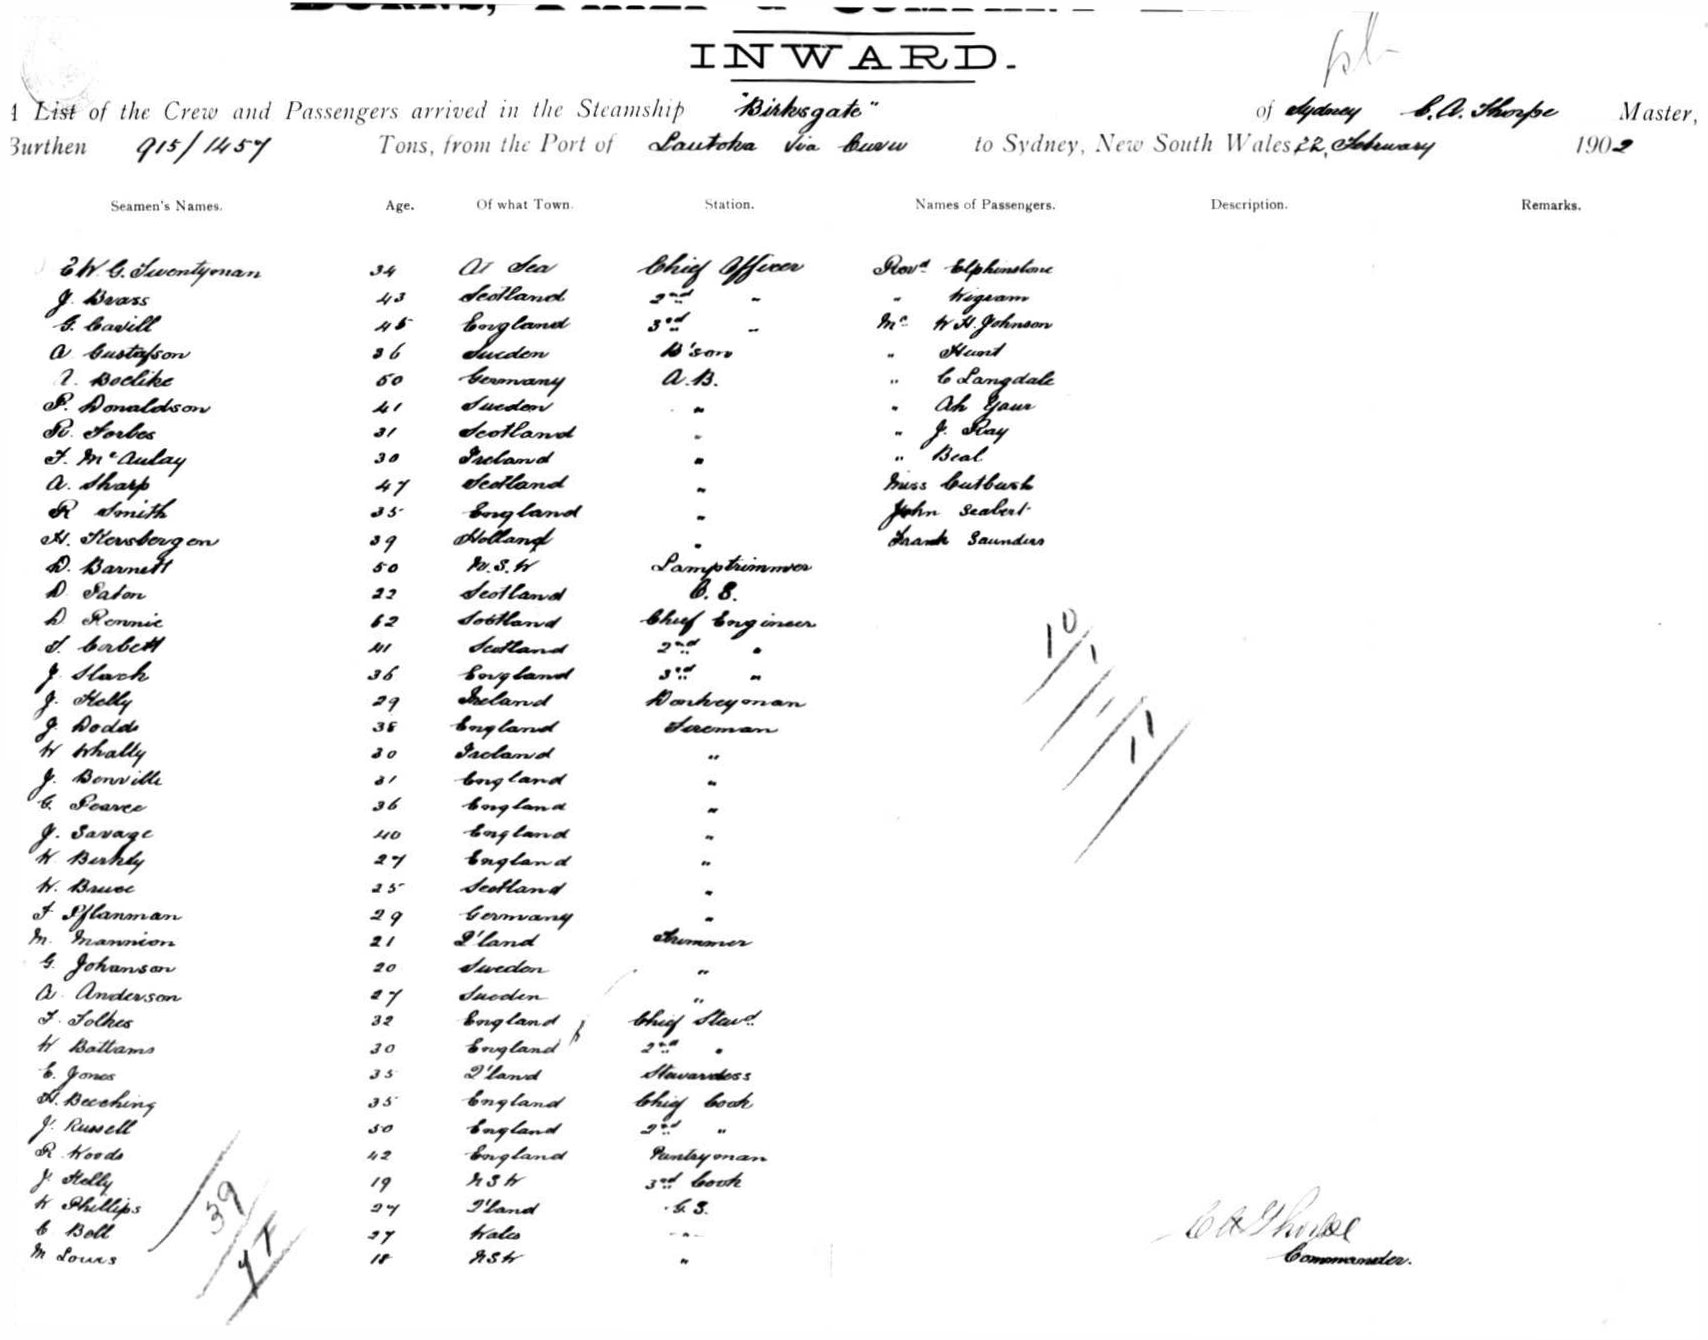 INWARD.
A List of the Crew and Passengers arrived in the Steamship "Birksgate" of Sydney C. A. Thorpe Master,
Burthen 915/1457 Tons, from the Port of Lautoka via Suva to Sydney, New South Wales 22, February 1902
Seamen's Names. Age. Of what Town. Station. Names of Passengers. Description. Remarks.
E W. G. Twentyman 34 At Sea Chief Officer Revd Elphinstone
J. Brass 43 Scotland 2nd " " Wigram
G. Cavill 45 England 3rd " Mr W H. Johnson
A Gustafson 36 Sweden B'son " Hunt
Boelike 50 Germany A.B. " C Langdale
P. Donaldson 41 Sweden " " Ah Yaur
R. Forbes 31 Scotland " " J. Ray
F. McAulay 30 Ireland " " Beal
A. Sharp 47 Scotland " Miss Cutbush
R Smith 35 England " John Seabert
H. Kersbergen 39 Holland " Frank Saunders
D. Barnett 50 N.S.W Lamptrimmer
D. Paton 22 Scotland
D Rennie 62 Scotland Chief Engineer
T. Corbett 41 Scotland 2nd "
J. Slack 36 England 3rd "
J. Kelly 29 Ireland Donkeyman
J. Dodds 38 England Fireman
W Whally 30 Ireland "
J. Benville 31 England "
G. Pearce 36 England "
J. Savage 40 England "
W Berkly 27 England "
W. Bruce 25 Scotland "
F Pflanman 29 Germany "
M. Mannion 21 Q'land Trimmer
G. Johanson 20 Sweden "
A. Anderson 27 Sweden "
F. Folkes 32 England Chief Stewd.
W Battams 30 England 2nd "
E. Jones 35 Q'land Stewardess
H. Beeching 35 England Chief Cook
J. Russell 50 England 2nd "
R Woods 42 England Pantryman
J. Kelly 19 NSW 3rd Cook
W Phillips 27 Q'land G.S.
C Bell 27 Wales "
M Louis 18 NSW "
10/
1/
1/
11
39
C A Thorpe
Commander.